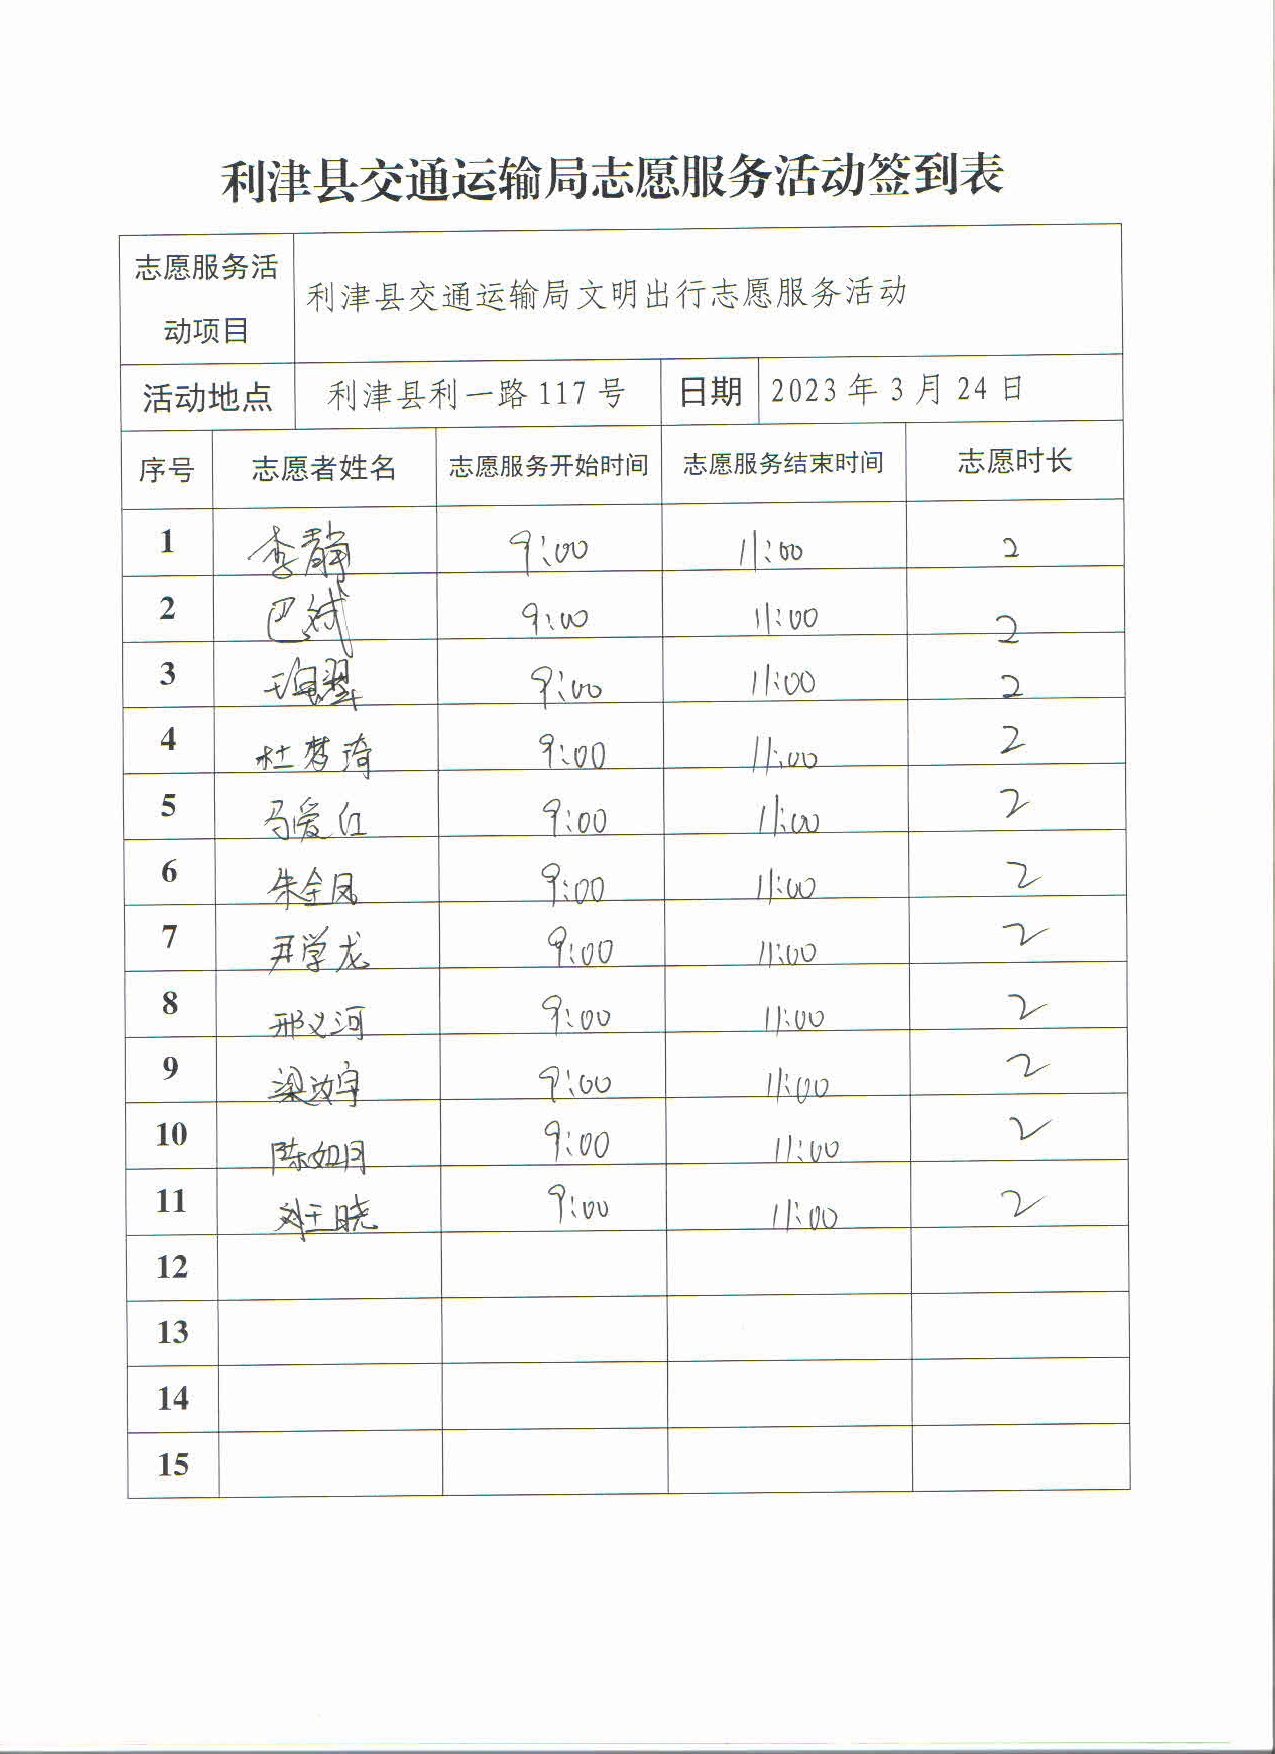 利津县交通运输局志愿服务活动签到表
志愿服务活动项目 利津县交通运输局文明出行志愿服务活动
活动地点 利津县利一路 117 号 日期 2023 年 3 月 24 日
序号 志愿者姓名 志愿服务开始时间 志愿服务结束时间 志愿时长
1 李静 9:00 11:00 2
2 巴斌 9:00 11:00 2
3 9:00 11:00 2
4 杜梦琦 9:00 11:00 2
5 马爱红 9:00 11:00 2
6 朱全凤 9:00 11:00 2
7 尹学龙 9:00 11:00 2
8 邢义河 9:00 11:00 2
9 梁汝宇 9:00 11:00 2
10 陈如月 9:00 11:00 2
11 刘王晓 9:00 11:00 2
12
13
14
15